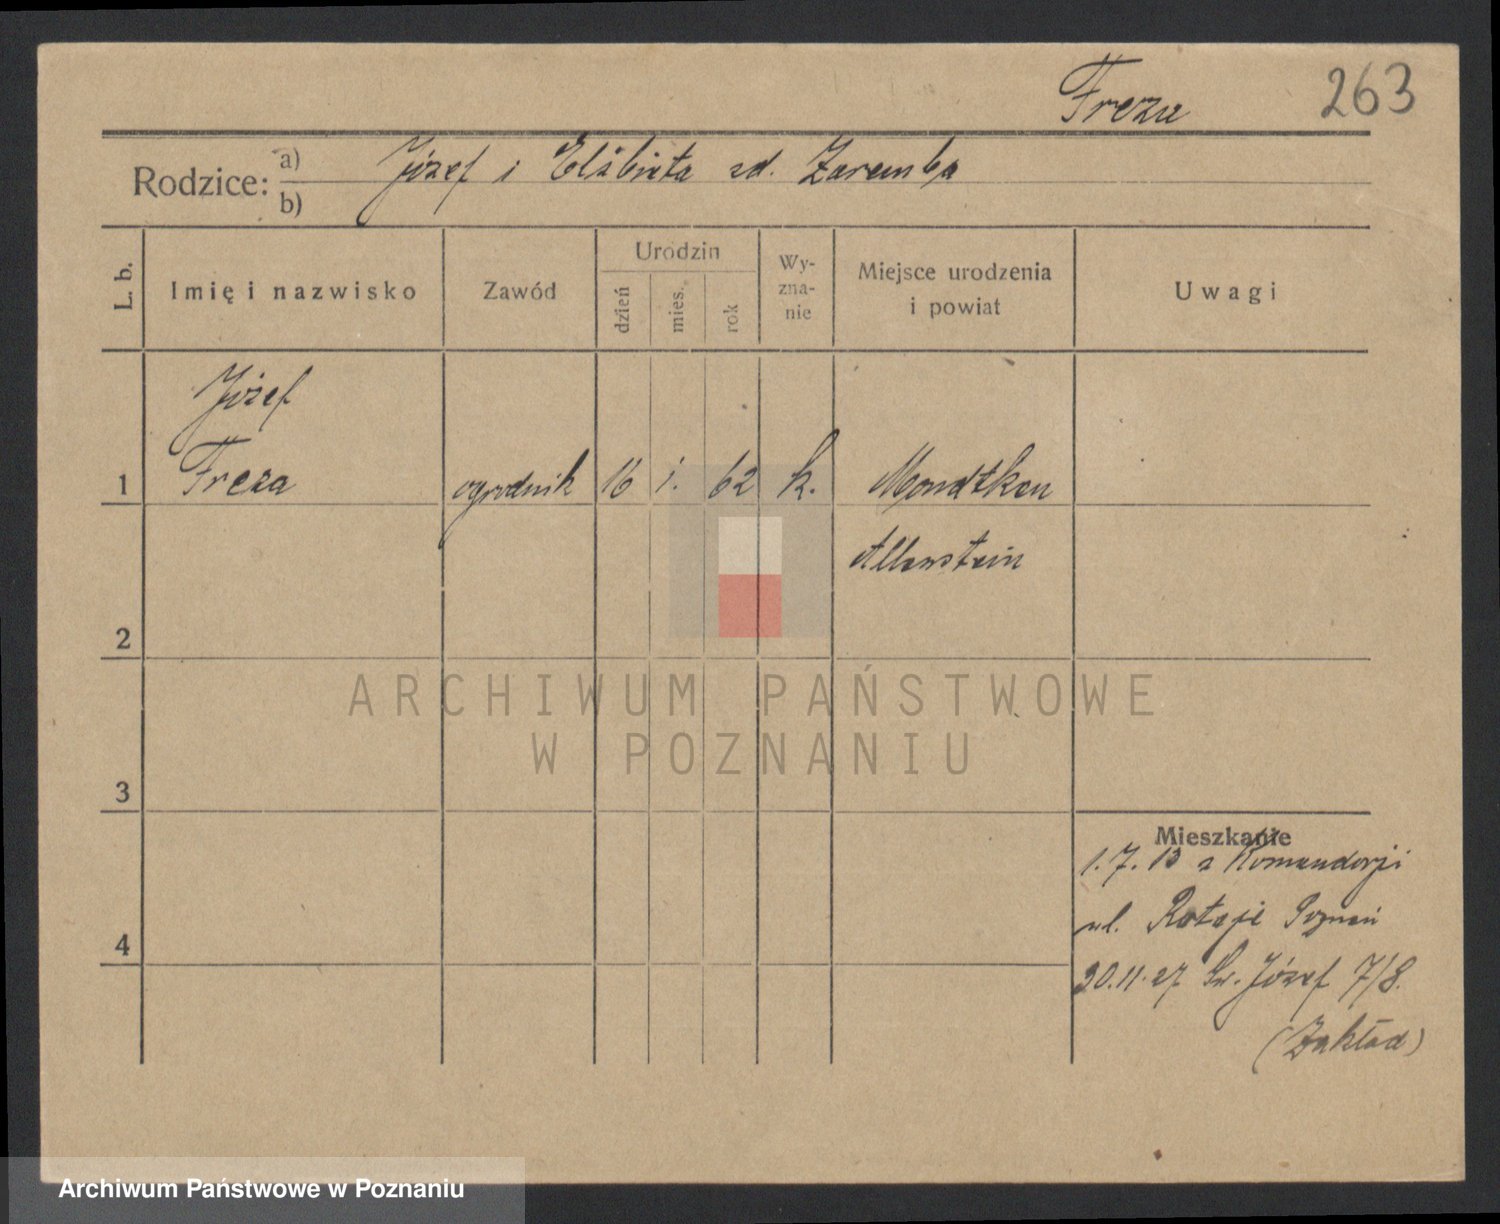 Freza 263
Rodzice: a) Józef i Elżbieta zd. Zaremba
b)
L. b. Imię i nazwisko Zawód Urodzin dzień mies. rok Wyzna-nie Miejsce urodzenia i powiat Uwagi
Józef
1 Freza ogrodnik 16 1. 62 k. Mondtken
Allenstein
2
ARCHIWUM PAŃSTWOWE
W POZNANIU
3
Mieszkanie
1. 7. 13 z Komandorji
ul. Rataje Poznań
4
20.11.27 Św. Józef 7/8.
(Zakład)
Archiwum Państwowe w Poznaniu